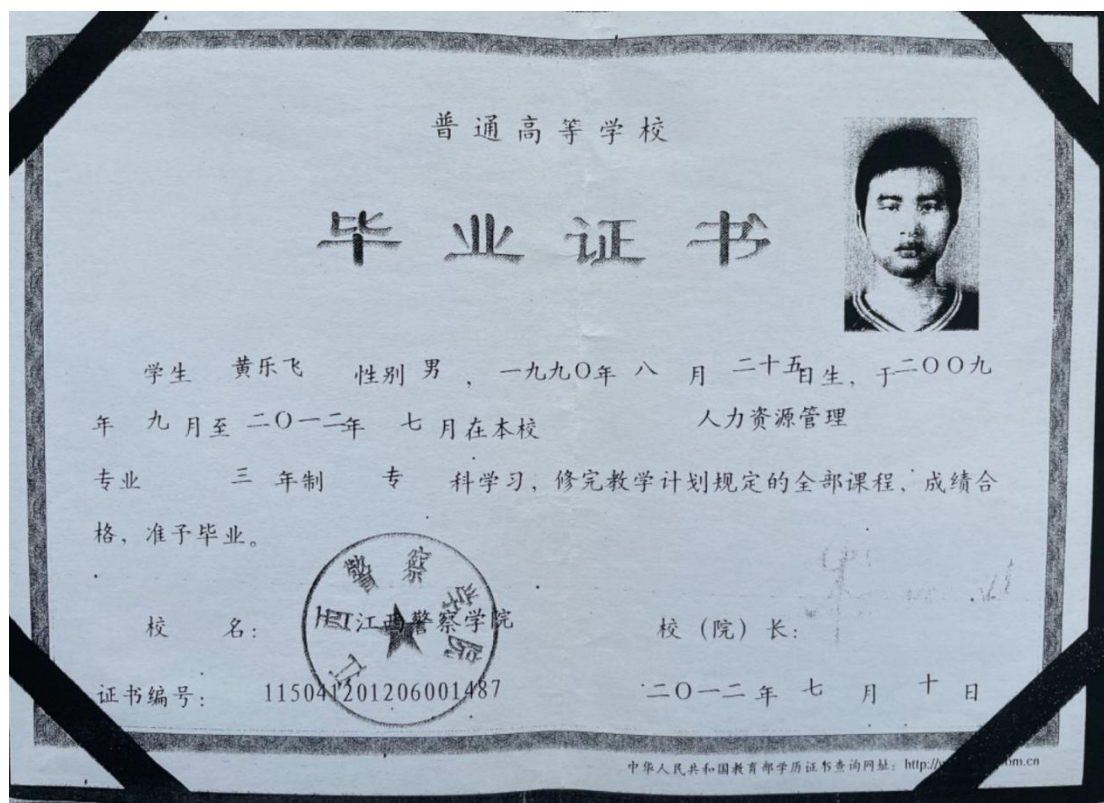 普通高等学校
毕业证书
学生 黄乐飞 性别 男 ，一九九〇年 八 月 二十五日生，于二〇〇九
年 九月至 二〇一二年 七 月在本校 人力资源管理
专业 三 年制 专 科学习，修完教学计划规定的全部课程，成绩合
格，准予毕业。
江西警察学院
校 名： 江西警察学院 校（院）长：
证书编号： 115041201206001487 二〇一二年 七 月 十 日
中华人民共和国教育部学历证书查询网址：http://